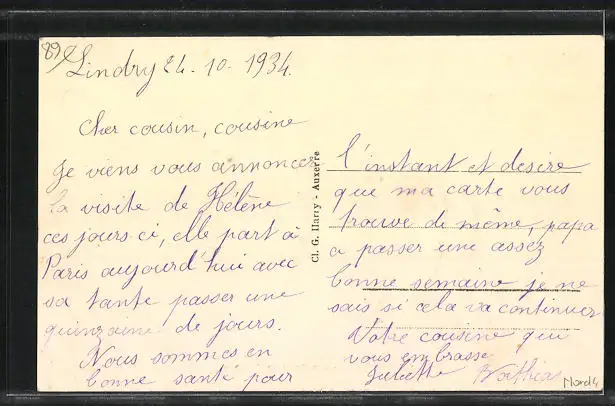 89
Lindry 24. 10. 1934.
Cher cousin, cousine
Je viens vous annoncer
la visite de Hélène
ces jours ci, elle part à
Paris aujourd'hui avec
sa tante passer une
quinzaine de jours.
Nous sommes en
bonne santé pour
Cl. G. Harry - Auxerre
l'instant et desire
que ma carte vous
trouve de même, papa
a passer une assez
bonne semaine je ne
sais si cela va continuer
Votre cousine qui
vous embrasse
Juliette